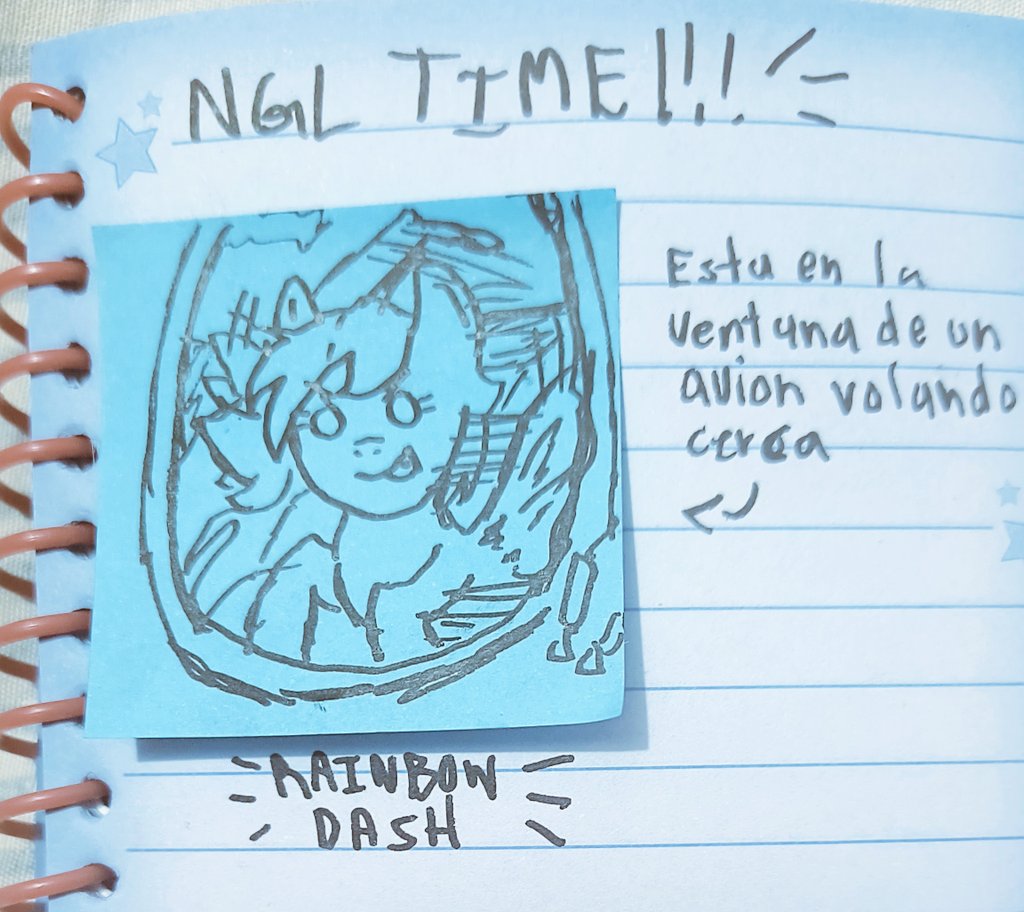 NGL TIME!!!
Esta en la
ventana de un
avion volando
cerca
RAINBOW
DASH